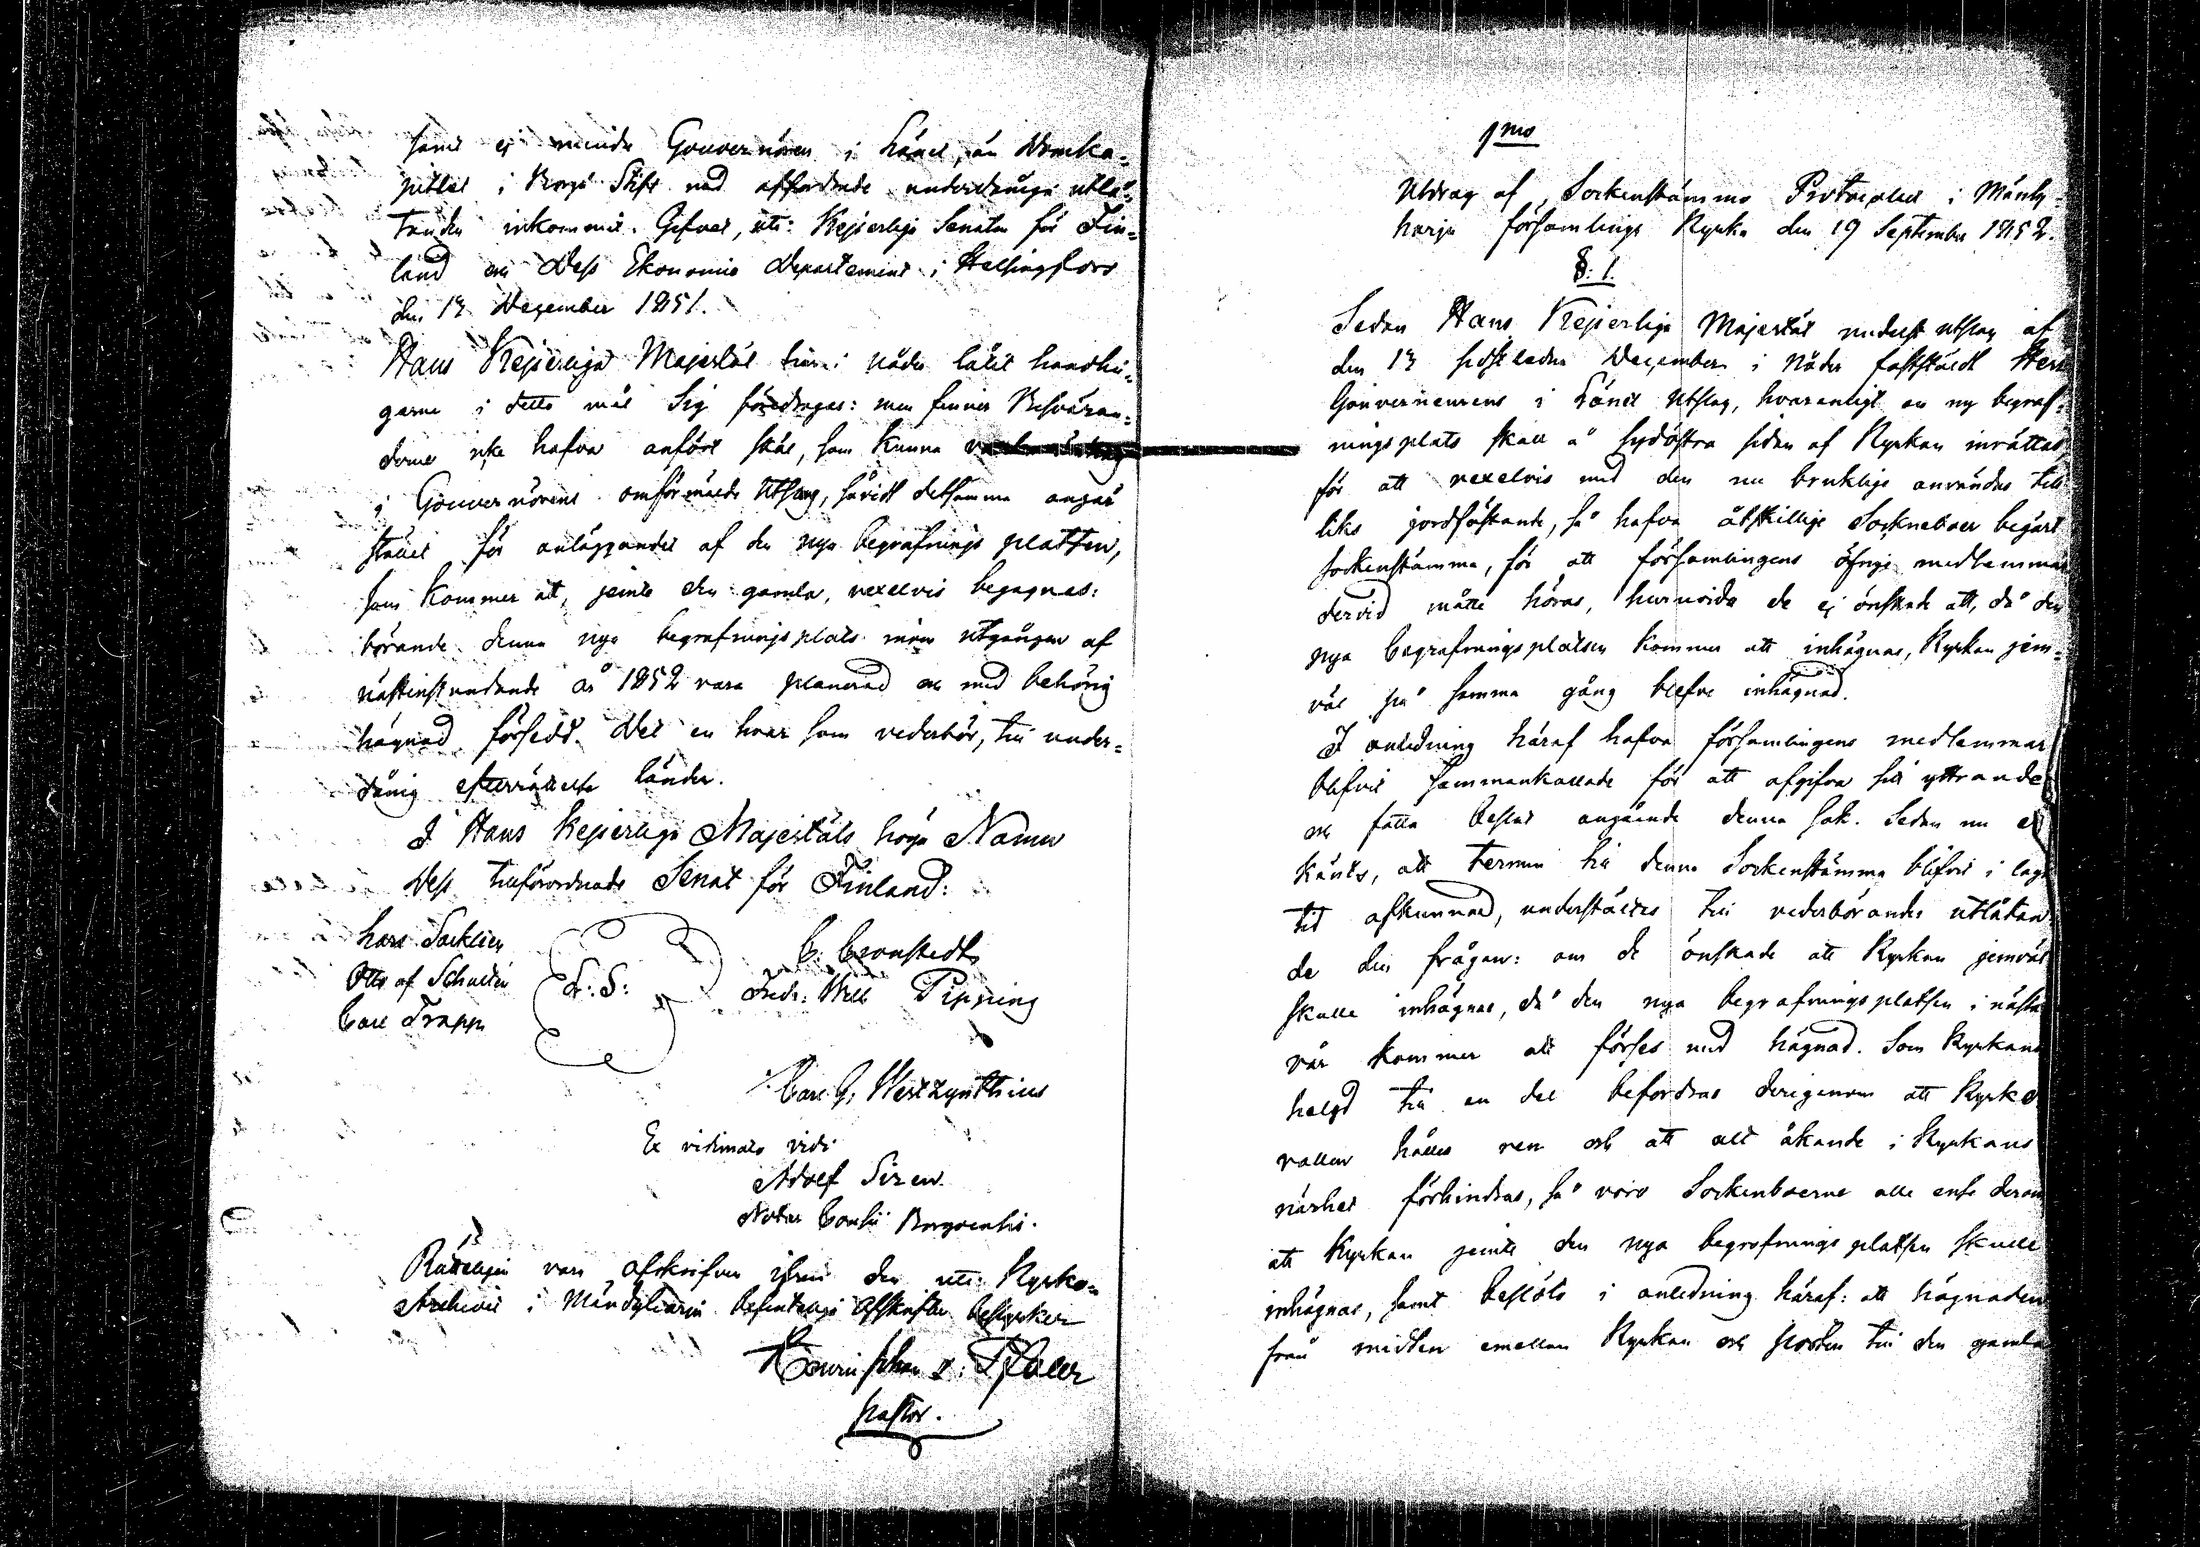 samt ej mindre Gouvernören i Länet, än Domka-
pitlet i Borgå Stift med affordrade underdåniga utlå-
tanden inkommit. Gifvet, uti Kejserliga Senaten för Fin-
land och Dess Ekonomie Departement i Helsingfors
den 17 December 1851.
Hans Kejserliga Majestät har i nåder låtit handlin-
garne i detta mål Sig föredragas: men finner Besväran-
derne icke hafva anfört skäl, som kunna
i Gouvernörens omförmälde Utslag, såvidt detsamma angår
stället för anläggandet af den nya begrafnings platsen,
som kommer at, jemte den gamla, vexelvis begagnas:
börande denna nya begrafningsplats inom utgången af
nästinstundande år 1852 vara planerad och med behörig
hägnad försedd. Det en hvar som vederbör, till under-
dånig efterrättelse länder.
I Hans Kejserliga Majestäts höga Namn
Dess tillförordnade Senat för Finland:
Lars Sacklen
Otto af Schulten
Carl Trapp
L.S:
C. Cronstedt
Fredr: Will Pipping
Carl G. Westzynthius
Ex vidimato vidi
Adolf Siren
Notar Consii Borgoensis.
Rätteligen vara afskrifven ifrån den uti Kyrko-
Archivet i Mändyharju befintliga afskriften bestyrker
pastor.
1mo
Utdrag af Sockenstämmo Protocollet i Mänty-
harju församlings Kyrka den 19 September 1852.
§. 1.
Sedan Hans Kejserliga Majestät medelst utslag af
den 17 sidstledne December i Nåder fastställt Herr
Gouverneurens i Länet Utslag, hvarenligt en ny begraf-
ningsplats skall å sydöstra sidan af Kyrkan inrättas,
för att vexelvis med den nu brukliga användas till
liks jordfästande, så hafva åtskillige Sockneboer begärt
sockenstämma, för att församlingens öfriga medlemmar
dervid måtte höras, huruvida de ej önskade att, då den
nya begrafningsplatsen kommer att inhägnas, Kyrkan jem-
väl på samma gång blefve inhägnad.
I anledning häraf hafva församlingens medlemmar
blifvit sammankallade för att afgifva sitt yttrande
och fatta beslut angående denna sak. Sedan nu er
känts, att termin till denna Sockenstämma blifvit i laga
tid afkunnad, underställtes till vederbörandes utlåtan
de den frågan: om de önskade att Kyrkan jemväl
skulle inhägnas, då den nya begrafningsplatsen i nästa
vår kommer att förses med hägnad. Som Kyrkans
helgd till en del befordras derigenom att Kyrko
vallen hålles ren och att allt åkande i Kyrkans
närhet förhindras, så voro Sockenboerne alla ense derom
att Kyrkan jemte den nya begrafnings platsen skulle
inhägnas, samt beslöts i anledning häraf: att hägnaden
från midten emellan Kyrkan och porten till den gamla